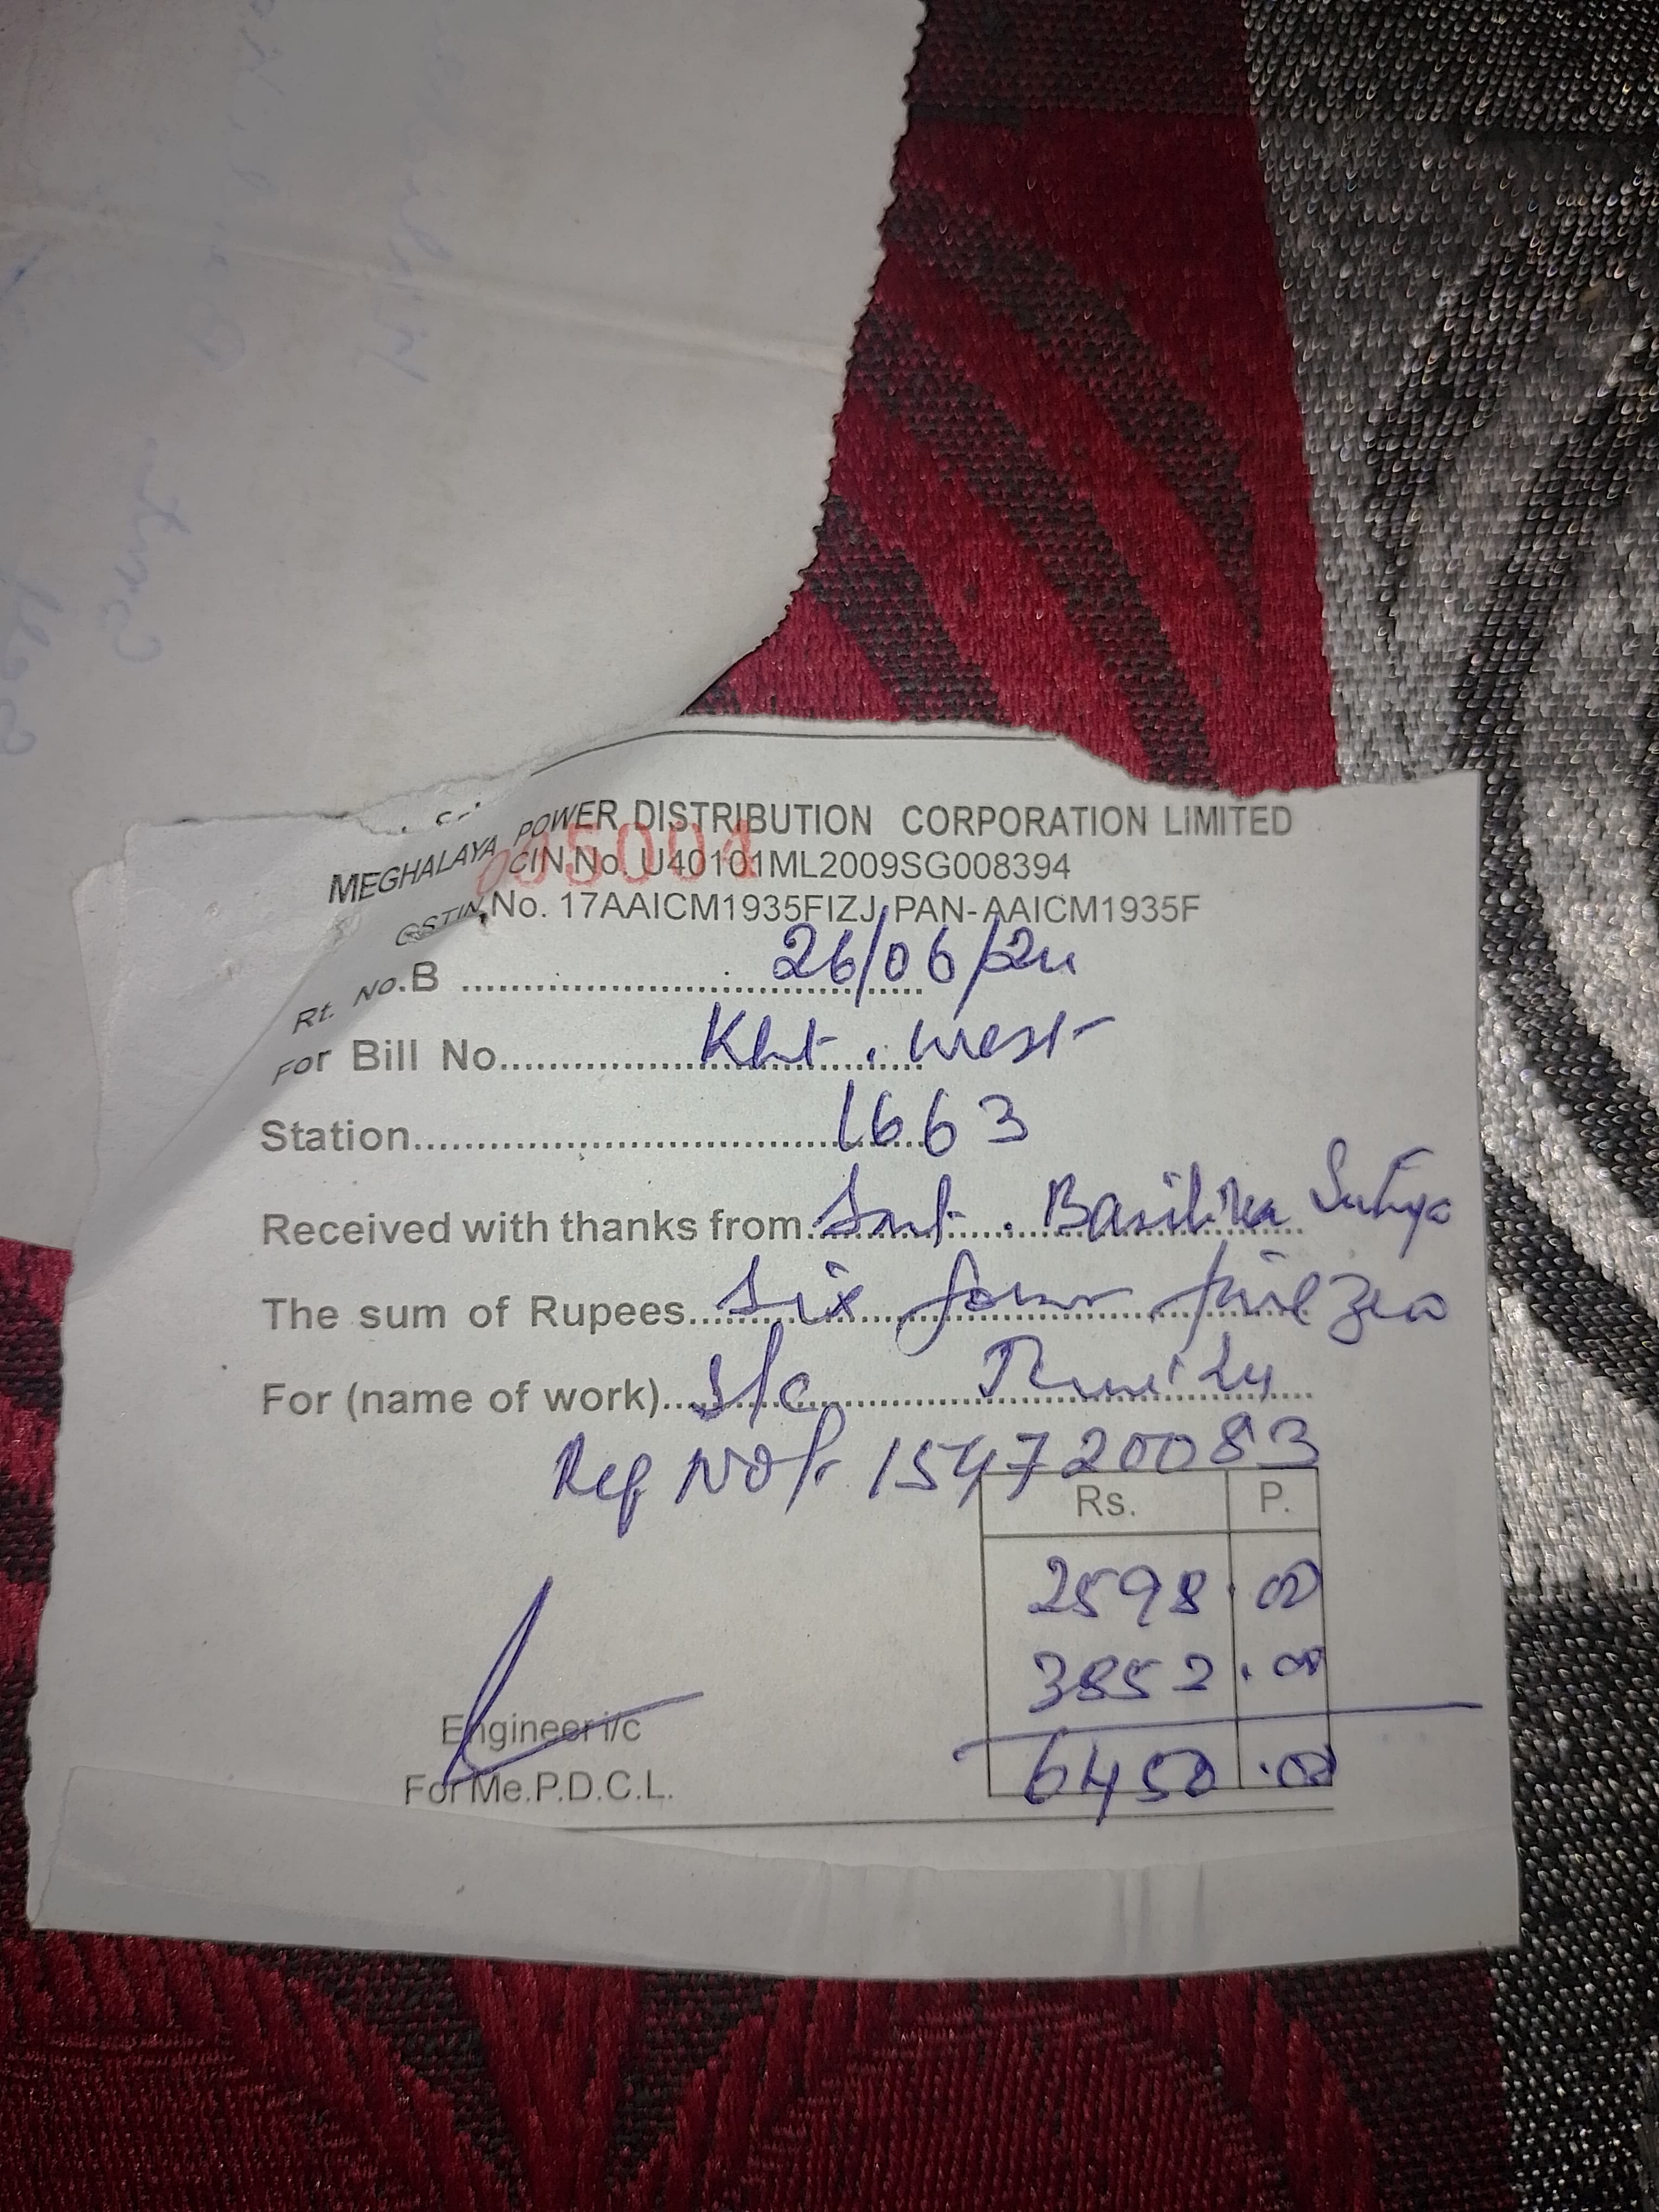 MEGHALAYA POWER DISTRIBUTION CORPORATION LIMITED
005004
CIN No. U40101ML2009SG008394
GSTIN No. 17AAICM1935FIZJ PAN-AAICM1935F
Rt. No.B .......... 26/06/24
For Bill No.......... Kht. West
Station.......... 1663
Received with thanks from.......... Smt. Basilika
The sum of Rupees.......... Six four five zero
For (name of work).......... S/c
Reg No/- 154720083
Rs. P.
2598.00
3852.00
Engineer i/c
6450.00
For Me.P.D.C.L.